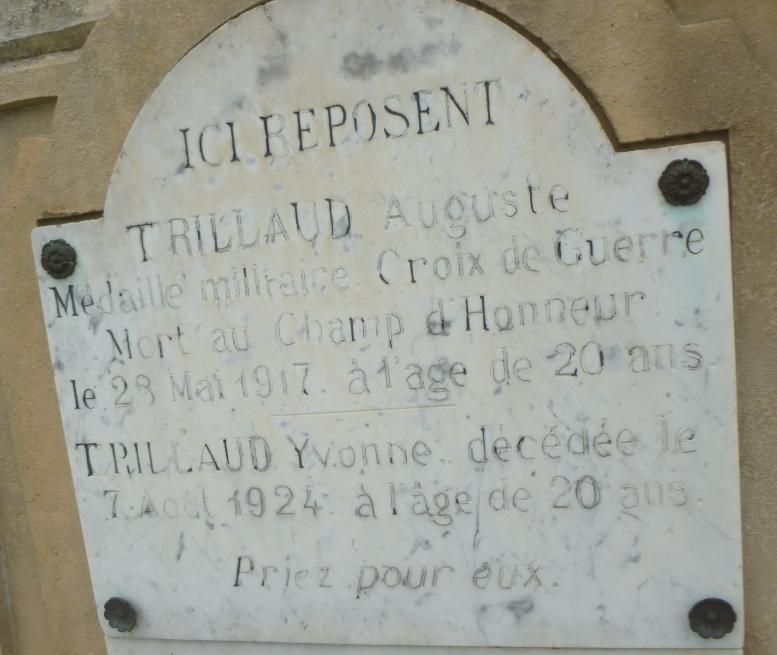 ICI REPOSENT
TRILLAUD Auguste
Médaille militaire Croix de Guerre
Mort au Champ d'Honneur
le 28 Mai 1917. à l'age de 20 ans.
TRILLAUD Yvonne décédée le
7 Août 1924 à l'âge de 20 ans.
Priez pour eux.